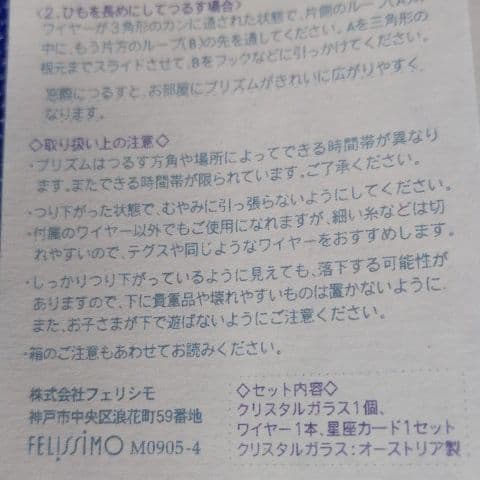 〈2.ひもを長めにしてつるす場合〉
ワイヤーが3角形のカンに通された状態で、片側のループ(A)
中に、もう片方のループ(B)の先を通してください。Aを三角形の
根元までスライドさせて、Bをフックなどに引っかけてください。
窓際につるすと、お部屋にプリズムがきれいに広がりやすく
なります。
◇取り扱い上の注意◇
・プリズムはつるす方角や場所によってできる時間帯が異なり
ます。またできる時間帯が限られています。ご了承ください。
・つり下がった状態で、むやみに引っ張らないようにしてください。
・付属のワイヤー以外でもご使用になれますが、細い糸などは切
れやすいので、テグスや同じようなワイヤーをおすすめします。
・しっかりつり下がっているように見えても、落下する可能性が
ありますので、下に貴重品や壊れやすいものは置かないように。
また、お子さまが下で遊ばないようにご注意ください。
・箱のご注意もあわせてお読みください。
株式会社フェリシモ
神戸市中央区浪花町59番地
FELISSIMO M0905-4
◇セット内容◇
クリスタルガラス1個、
ワイヤー1本、星座カード1セット
クリスタルガラス:オーストリア製